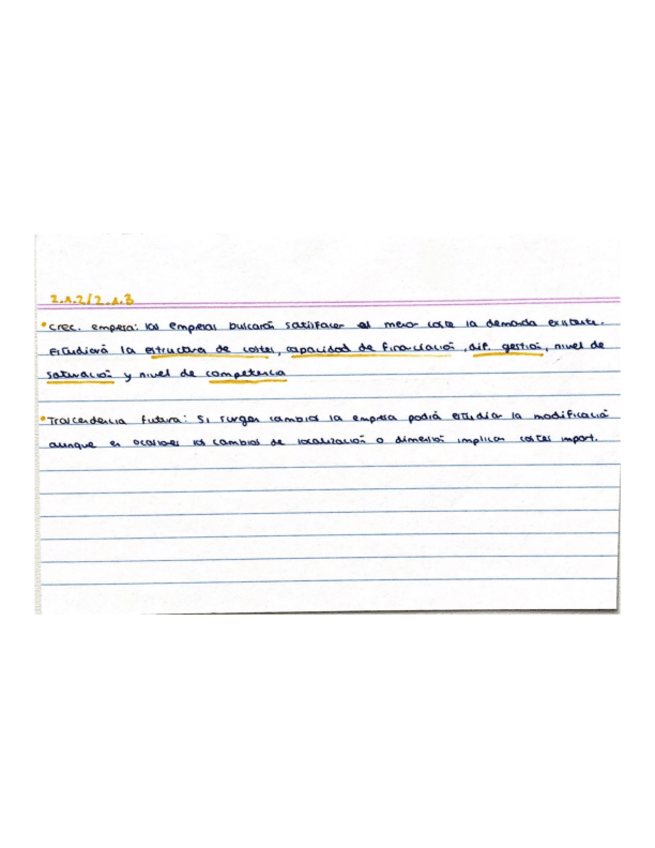 2.1.2/2.1.3
• Crec. empresa: las empresas buscarán satisfacer al menor coste la demanda existente.
Estudiará la estructura de costes, capacidad de financiación, dif. gestión, nivel de
saturación y nivel de competencia
• Trascendencia futura: Si surgen cambios la empresa podrá estudiar la modificación
aunque en ocasiones los cambios de localización o dimensión implican costes import.